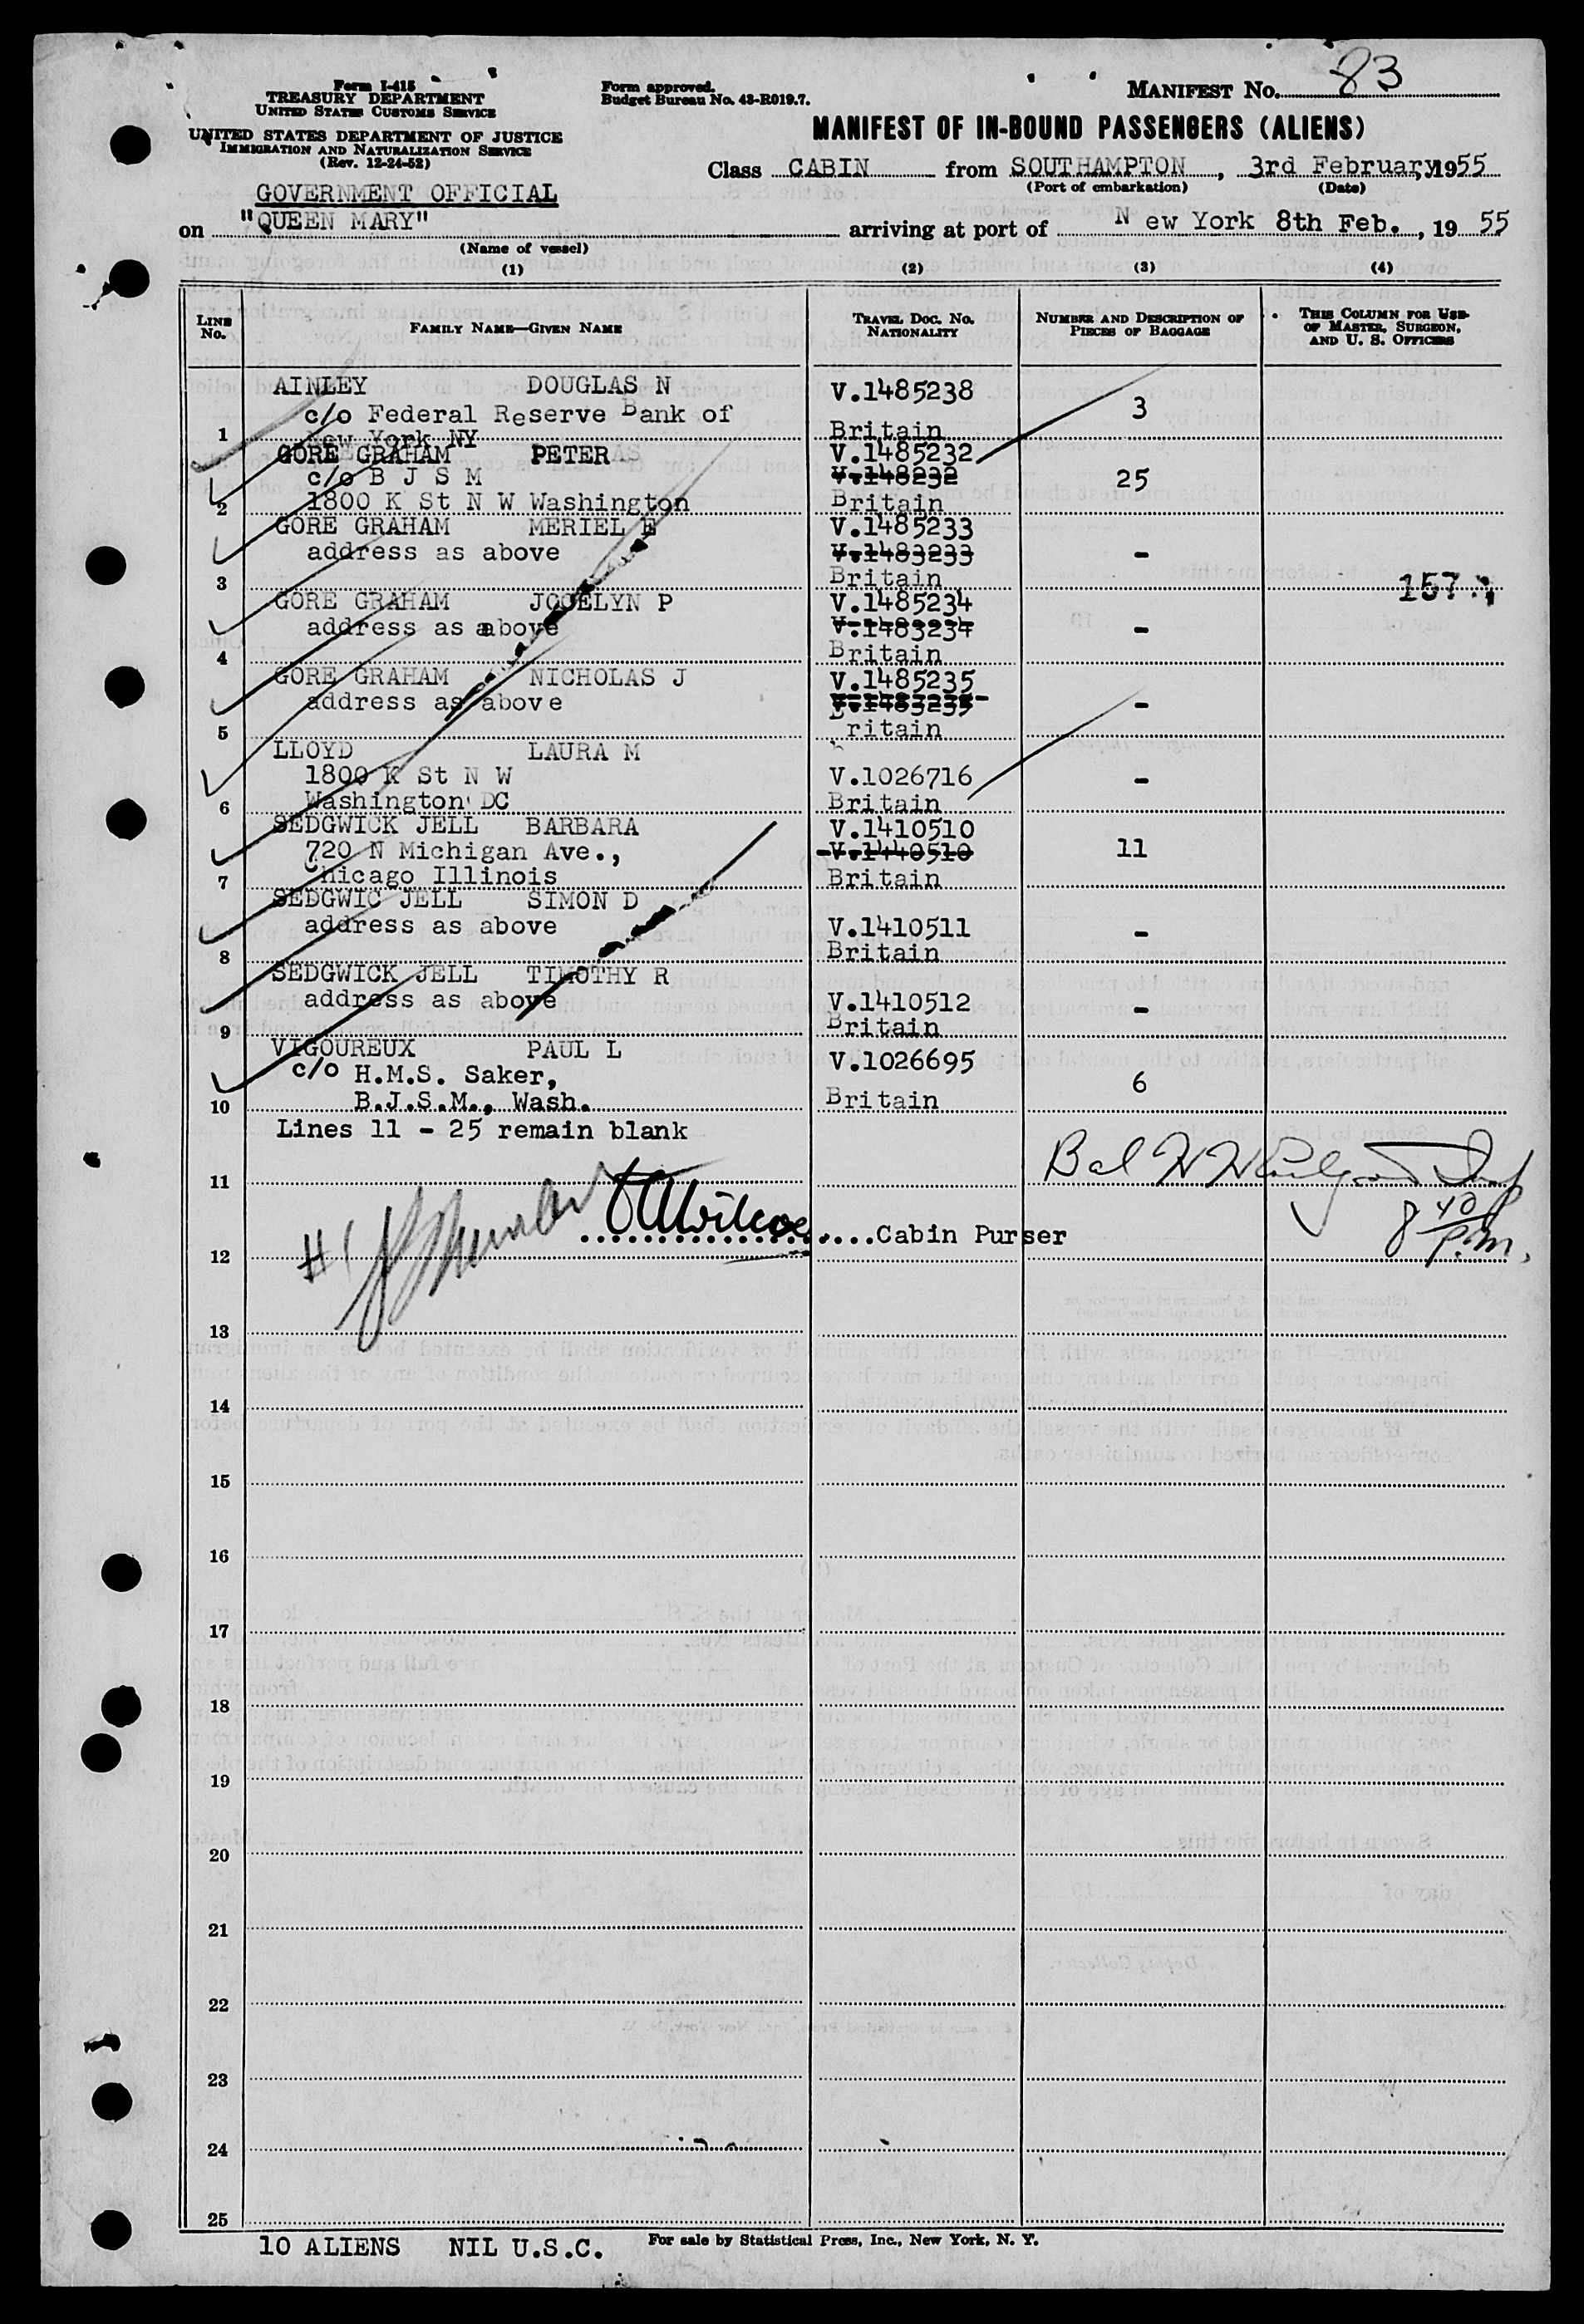 Form I-415
TREASURY DEPARTMENT
UNITED STATES CUSTOMS SERVICE
UNITED STATES DEPARTMENT OF JUSTICE
IMMIGRATION AND NATURALIZATION SERVICE
(Rev. 12-24-52)
Form approved.
Budget Bureau No. 43-R019.7.
MANIFEST No. 83
MANIFEST OF IN-BOUND PASSENGERS (ALIENS)
Class CABIN from SOUTHAMPTON, 3rd February, 1955
(Port of embarkation) (Date)
GOVERNMENT OFFICIAL
on "QUEEN MARY" arriving at port of New York 8th Feb., 1955
(Name of vessel)
(1) (2) (3) (4)
LINE No. FAMILY NAME—GIVEN NAME TRAVEL DOC. No. NATIONALITY NUMBER AND DESCRIPTION OF PIECES OF BAGGAGE THIS COLUMN FOR USE OF MASTER, SURGEON, AND U. S. OFFICERS
AINLEY DOUGLAS N V.1485238
c/o Federal Reserve Bank of 3
1 New York NY Britain
GORE GRAHAM PETER V.1485232
c/o B J S M V.148232 25
2 1800 K St N W Washington Britain
GORE GRAHAM MERIEL E V.1485233
address as above V.1483233 -
3 Britain
157
GORE GRAHAM JOCELYN P V.1485234
address as above V.1483234 -
4 Britain
GORE GRAHAM NICHOLAS J V.1485235
address as above V.1483235 -
5 Britain
LLOYD LAURA M
1800 K St N W V.1026716 -
6 Washington DC Britain
SEDGWICK JELL BARBARA V.1410510
720 N Michigan Ave., V.1440510 11
7 Chicago Illinois Britain
SEDGWIC JELL SIMON D
address as above V.1410511 -
8 Britain
SEDGWICK JELL TIMOTHY R
address as above V.1410512 -
9 Britain
VIGOUREUX PAUL L V.1026695
c/o H.M.S. Saker, 6
10 B.J.S.M., Wash. Britain
Lines 11 - 25 remain blank
11
#1
Wilcox
Cabin Purser
8 40 P.M.
12
13
14
15
16
17
18
19
20
21
22
23
24
25
10 ALIENS NIL U.S.C. For sale by Statistical Press, Inc., New York, N. Y.